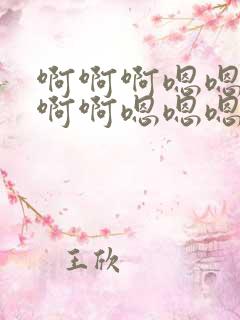 啊啊啊嗯嗯
啊啊嗯嗯嗯
王欣